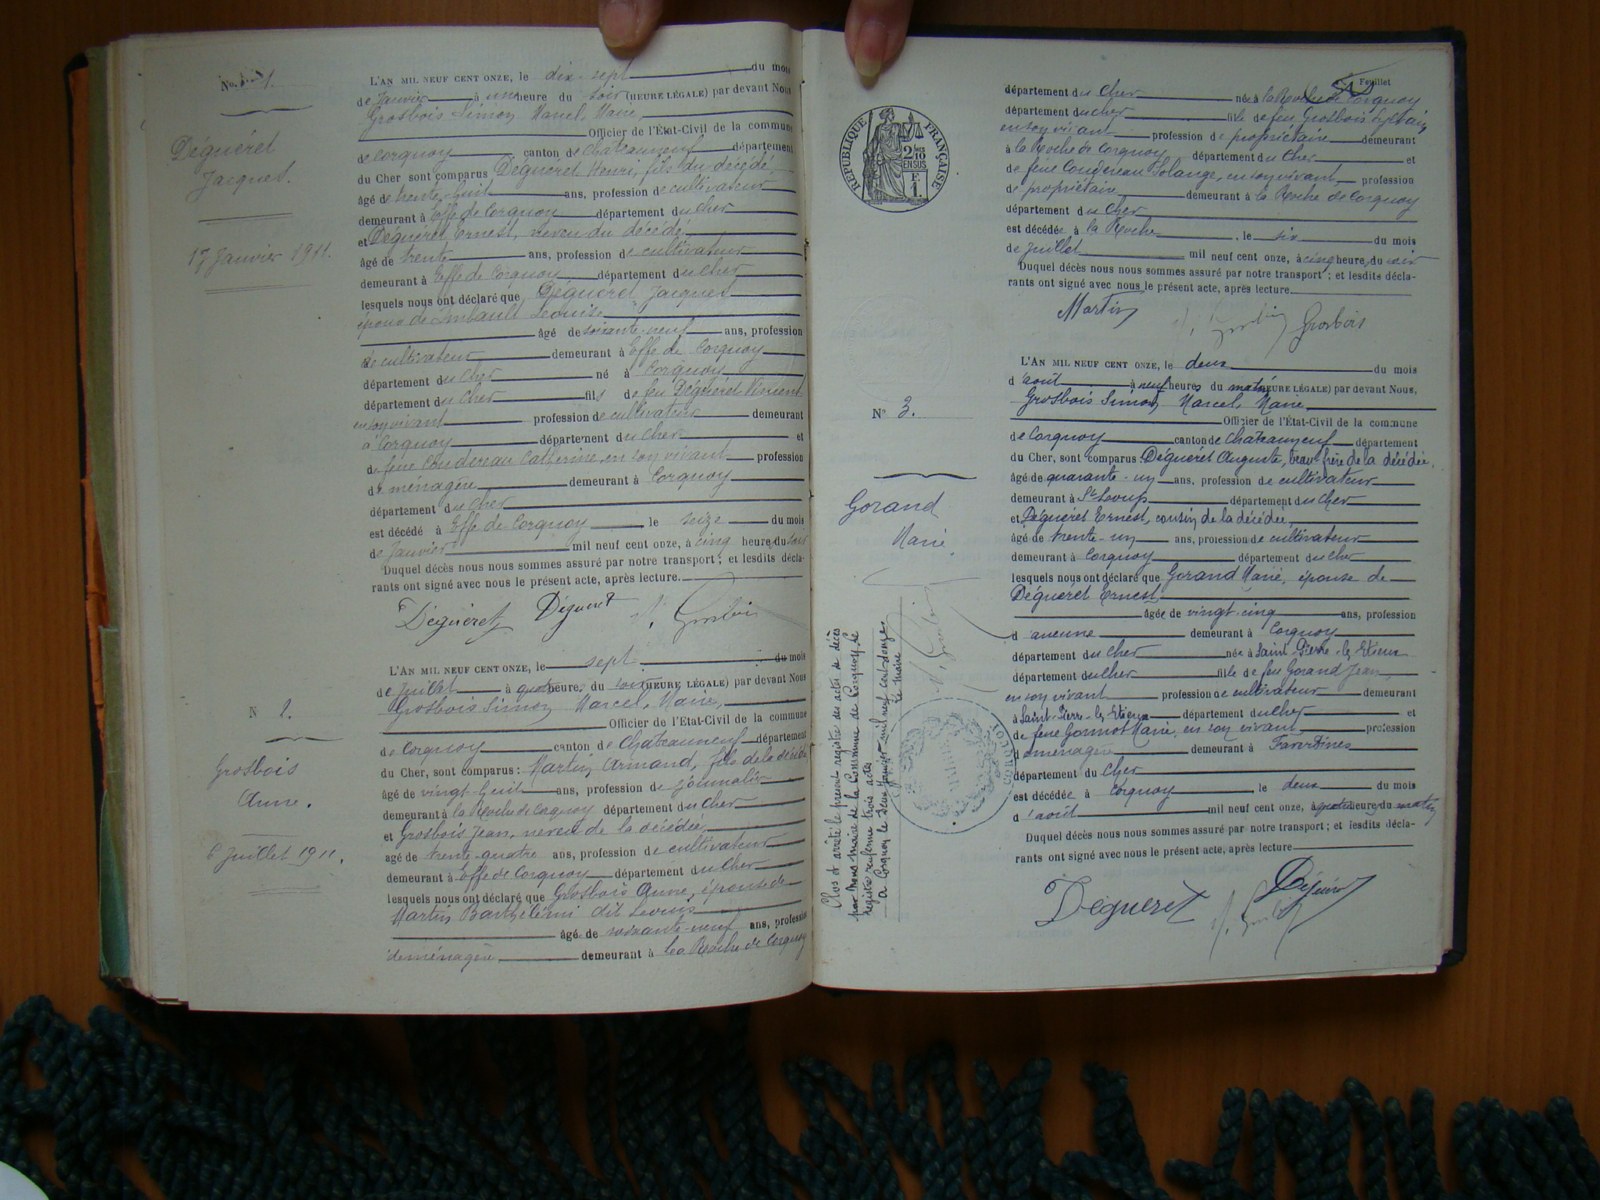 N° 1.
Déguéret
Jacques.
17 Janvier 1911.
L'AN MIL NEUF CENT ONZE, le dix-sept du mois
de Janvier à une heure du soir (HEURE LÉGALE) par devant Nous
Grosbois Simon Marcel, Marie,
Officier de l'État-Civil de la commune
de Corquoy canton de Chateauneuf département
du Cher sont comparus Déguéret Henri, fils du décédé,
âgé de trente-huit ans, profession de cultivateur
demeurant à Effe de Corquoy département du Cher
et Déguéret Ernest, neveu du décédé
âgé de trente ans, profession de cultivateur
demeurant à Effe de Corquoy département du Cher
lesquels nous ont déclaré que Déguéret Jacques
époux de Imbault Louise
âgé de soixante-neuf ans, profession
de cultivateur demeurant à Effe de Corquoy
département du Cher né à Corquoy
département du Cher fils de feu Déguéret Vincent
en son vivant profession de cultivateur demeurant
à Corquoy département du Cher et
de feue Coudereau Catherine, en son vivant profession
de ménagère demeurant à Corquoy
département du Cher
est décédé à Effe de Corquoy le seize du mois
de Janvier mil neuf cent onze, à cinq heure du soir
Duquel décès nous nous sommes assuré par notre transport ; et lesdits décla-
rants ont signé avec nous le présent acte, après lecture.
Déguéret Déguéret M. Grosbois
N° 2.
Grosbois
Anne.
6 Juillet 1911.
L'AN MIL NEUF CENT ONZE, le sept du mois
de Juillet à quatre heure, du soir (HEURE LÉGALE) par devant Nous
Grosbois Simon Marcel, Marie,
Officier de l'État-Civil de la commune
de Corquoy canton de Chateauneuf département
du Cher, sont comparus : Martin Armand, fils de la décédée
âgé de vingt-huit ans, profession de journalier
demeurant à la Roche de Corquoy département du Cher
et Grosbois Jean, neveu de la décédée,
âgé de trente-quatre ans, profession de cultivateur
demeurant à Effe de Corquoy département du Cher
lesquels nous ont déclaré que Grosbois Anne, épouse de
Martin Barthélemi dit Louis
âgé de soixante-neuf ans, profession
de ménagère demeurant à la Roche de Corquoy
Feuillet
RÉPUBLIQUE FRANÇAISE
2/10 EN SUS
département du Cher née à la Roche de Corquoy
département du Cher fille de feu Grosbois Sylvain
en son vivant profession de propriétaire demeurant
à la Roche de Corquoy département du Cher et
de feue Coudereau Solange, en son vivant profession
de propriétaire demeurant à la Roche de Corquoy
département du Cher
est décédée à la Roche, le six du mois
de Juillet mil neuf cent onze, à cinq heure du soir
Duquel décès nous nous sommes assuré par notre transport ; et lesdits décla-
rants ont signé avec nous le présent acte, après lecture.
Martin M. Grosbois Grosbois
N° 3.
Gorand
Marie.
L'AN MIL NEUF CENT ONZE, le deux du mois
d'août à neuf heure, du matin (HEURE LÉGALE) par devant Nous,
Grosbois Simon Marcel, Marie
Officier de l'État-Civil de la commune
de Corquoy canton de Chateauneuf département
du Cher, sont comparus : Déguéret Auguste, beau-frère de la décédée,
âgé de quarante-un ans, profession de cultivateur
demeurant à St Loup département du Cher
et Déguéret Ernest, cousin de la décédée,
âgé de trente-un ans, profession de cultivateur
demeurant à Corquoy département du Cher
lesquels nous ont déclaré que Gorand Marie, épouse de
Déguéret Ernest,
âgée de vingt-cinq ans, profession
d'aucune demeurant à Corquoy
département du Cher née à Saint-Pierre-les-Etieux
département du Cher fille de feu Gorand Jean,
en son vivant profession de cultivateur demeurant
à Saint-Pierre-les-Etieux département du Cher et
de feue Marie, en son vivant profession
de ménagère demeurant à
département du Cher
est décédée à Corquoy le deux du mois
d'août mil neuf cent onze, à quatre heure du matin
Duquel décès nous nous sommes assuré par notre transport ; et lesdits décla-
rants ont signé avec nous le présent acte, après lecture
Déguéret M. Grosbois Déguéret
Clos et arrêté le présent registre des actes de décès
par nous maire de la Commune de Corquoy, le
registre renferme trois actes
à Corquoy le deux Janvier mil neuf cent douze
Le maire
M. Grosbois